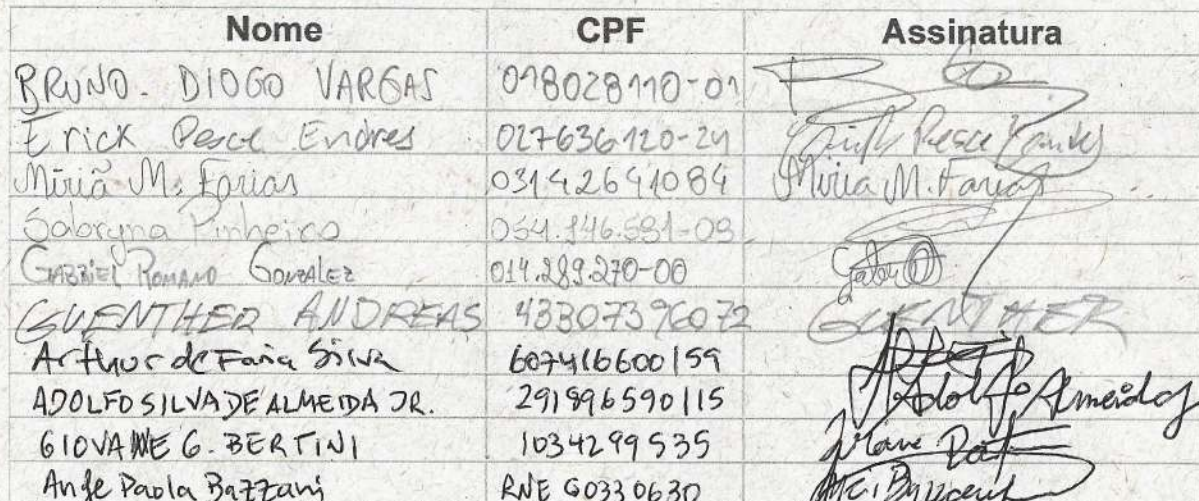 Nome CPF Assinatura
BRUNO. DIOGO VARGAS 018028110-01
Erick Pesce Endres 027636120-24
Miriã M. Farias 03142641084 Miriã M. Farias
Sabryna Pinheiro 054.146.591-09
GABRIEL ROMANO GONZALEZ 014.289.270-00
GUENTHER ANDREAS 43307396072 GUENTHER
Arthur de Faria Silva 607416600159
ADOLFO SILVA DE ALMEIDA JR. 291896590115 Adolfo Almeida
GIOVANNE G. BERTINI 1034299535
Ange Paola Bazzani RNE G0330630